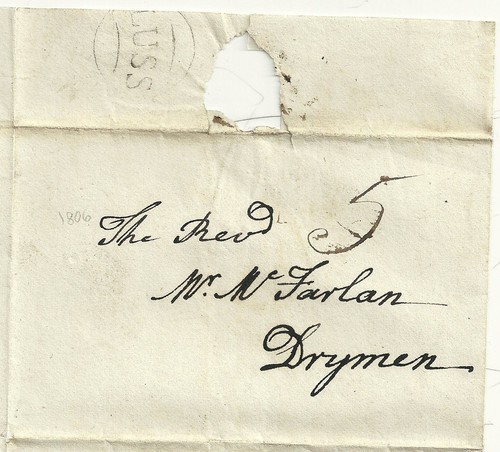 LUSS
1806
The Revd 5
Mr. Mc Farlan
Drymen